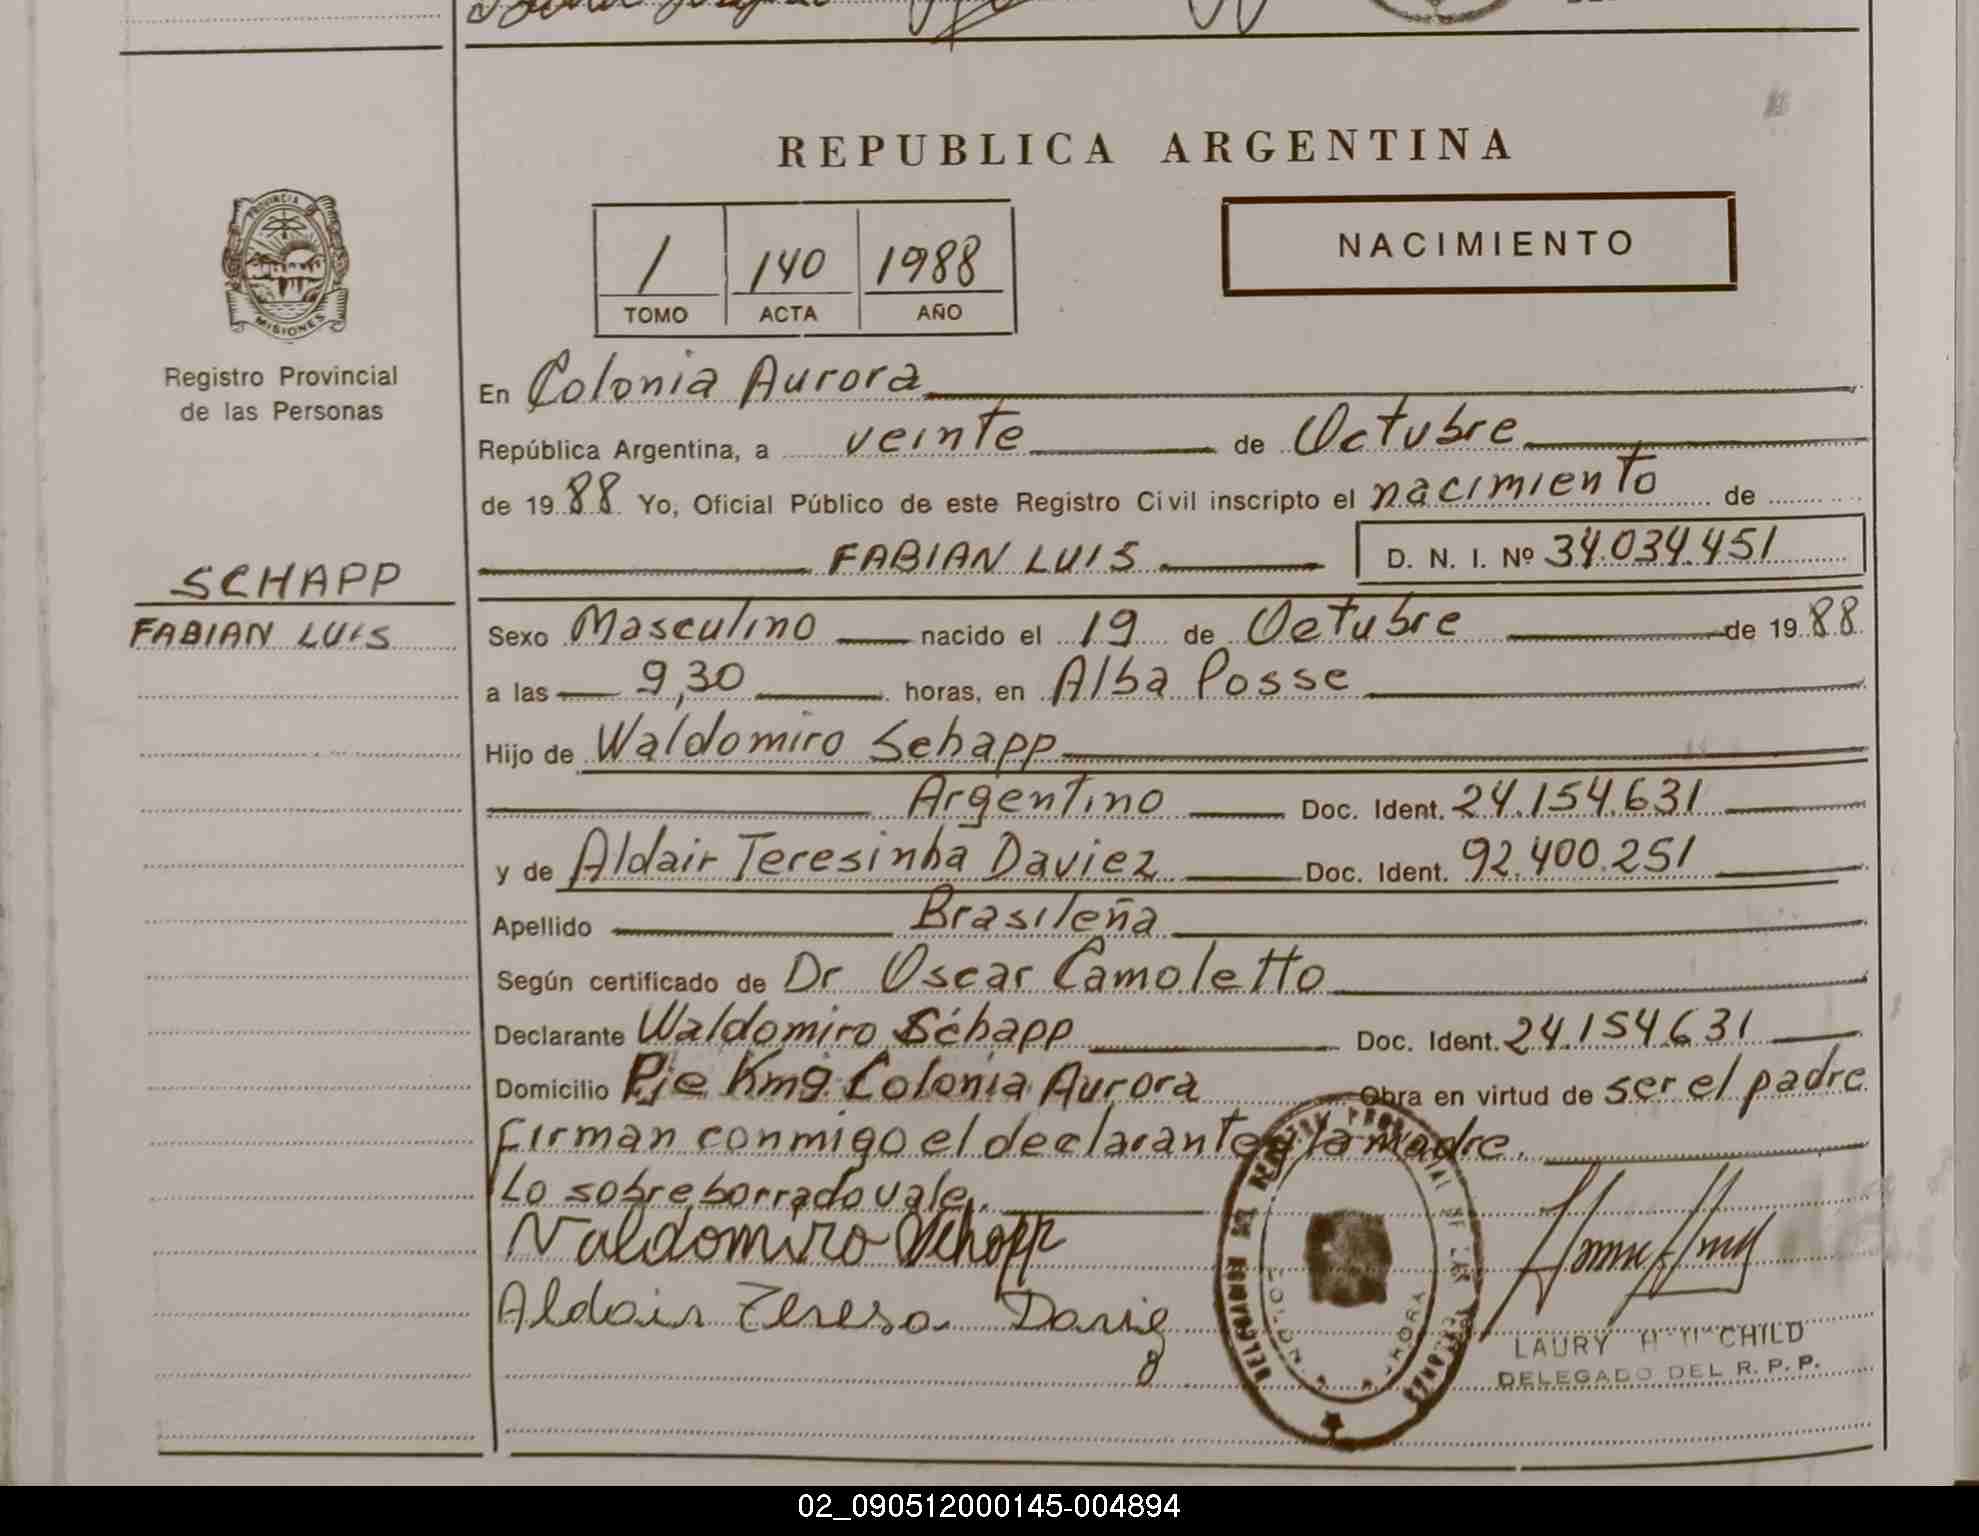 REPUBLICA ARGENTINA
PROVINCIA DE
MISIONES
Registro Provincial
de las Personas
1 140 1988
TOMO ACTA AÑO
NACIMIENTO
SCHAPP
FABIAN LUIS
En Colonia Aurora
República Argentina, a veinte de Octubre
de 1988 Yo, Oficial Público de este Registro Civil inscripto el nacimiento de
FABIAN LUIS D. N. I. Nº 34.034.451
Sexo Masculino nacido el 19 de Octubre de 1988
a las 9,30 horas, en Alba Posse
Hijo de Waldomiro Schapp
Argentino Doc. Ident. 24.154.631
y de Aldair Teresinha Daviez Doc. Ident. 92.400.251
Apellido Brasileña
Según certificado de Dr Oscar Camoletto
Declarante Waldomiro Schapp Doc. Ident. 24.154.631
Domicilio Pje Km9 Colonia Aurora Obra en virtud de ser el padre
Firman conmigo el declarante y la madre.
Lo sobreborrado vale.
Valdomiro Schapp
Aldair Teresa
LAURY CHILD
DELEGADO DEL R. P. P.
02_090512000145-004894